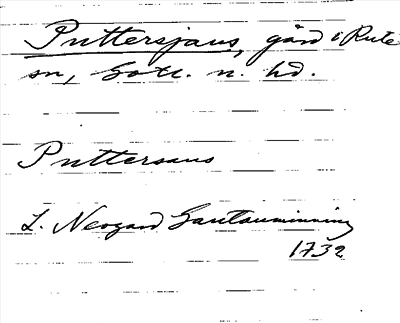 Puttersjaus, gård i Rute
sn, Gotl. n. hd.
Puttersaus
L. Neogard Gautauminning
1732